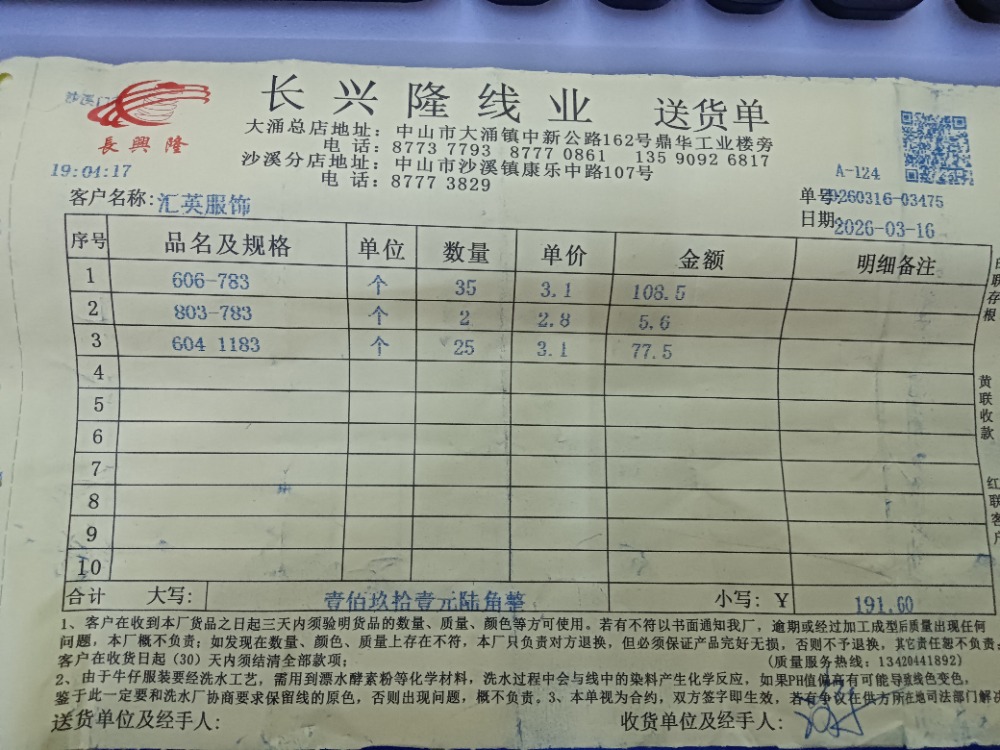 长兴隆线业 送货单
沙溪门
長興隆
大涌总店地址：中山市大涌镇中新公路162号鼎华工业楼旁
电话：8773 7793 8777 0861 135 9092 6817
沙溪分店地址：中山市沙溪镇康乐中路107号
电话：8777 3829
19:04:17
A-124
客户名称：汇英服饰
单号：20260316-03475
日期：2026-03-16
序号 品名及规格 单位 数量 单价 金额 明细备注
1 606-783 个 35 3.1 108.5
2 803-783 个 2 2.8 5.6
3 604 1183 个 25 3.1 77.5
4
5
6
7
8
9
10
合计 大写：壹佰玖拾壹元陆角整 小写：¥ 191.60
联存根
黄联收款
红联客户
1、客户在收到本厂货品之日起三天内须验明货品的数量、质量、颜色等方可使用。若有不符以书面通知我厂，逾期或经过加工成型后质量出现任何
问题，本厂概不负责；如发现在数量、颜色、质量上存在不符，本厂只负责对方退换，但必须保证产品完好无损，否则不予退换，其它责任恕不负责；
客户在收货日起（30）天内须结清全部款项； （质量服务热线：13420441892）
2、由于牛仔服装要经洗水工艺，需用到漂水酵素粉等化学材料，洗水过程中会与线中的染料产生化学反应，如果PH值偏高有可能导致线色变色，
鉴于此一定要和洗水厂协商要求保留线的原色，否则出现问题，概不负责。3、本单视为合约，双方签字即生效，若有争议在供方所在地司法部门解决
送货单位及经手人： 收货单位及经手人：